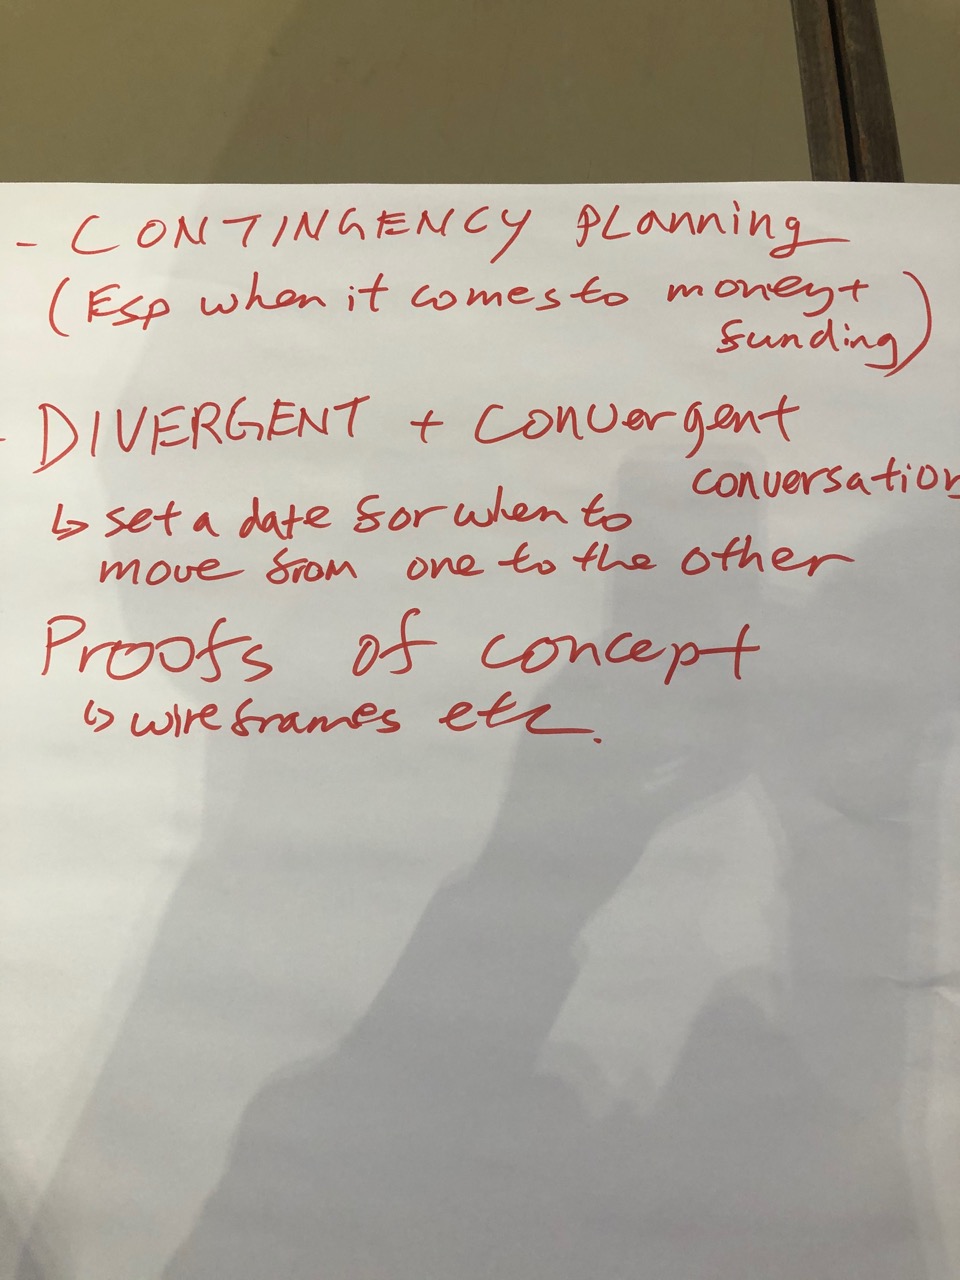 - CONTINGENCY PLanning
(Esp when it comes to money +
funding)
- DIVERGENT + convergent
conversation
↳ set a date for when to
move from one to the other
Proofs of concept
↳ wireframes etc.